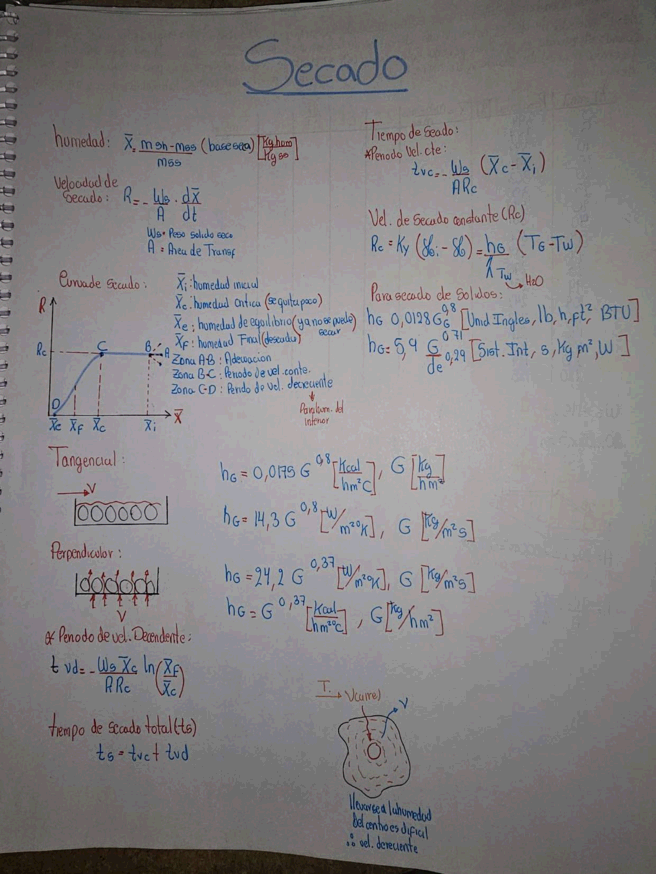 Secado
humedad: X̄ = msh-mss / mss (base seca) [Kg hum / Kg ss]
Velocidad de
Secado: R = - Ws / A · dX̄ / dt
Ws = Peso solido seco
A = Area de Transf
Curva de secado:
X̄i: humedad inicial
X̄c: humedad critica (se quita poco)
X̄e: humedad de equilibrio (ya no se puede
secar
X̄f: humedad Final (deseada)
Zona A-B: Adecuacion
Zona B-C: Periodo de vel. conte.
Zona C-D: Periodo de vel. decreciente
Para hum. del
interior
R
Rc
C
B
A
D
X̄e X̄f X̄c X̄i X̄
Tiempo de Secado:
*Periodo Vel. cte:
tvc = - Ws / ARc (X̄c - X̄i)
Vel. de Secado constante (Rc)
Rc = Ky (ℋi - ℋ) = hG / λTw (TG - Tw)
H2O
Para secado de Solidos:
hG 0,0128 G^0,8 [Unid Ingles, lb, h, ft², BTU]
hG = 5,9 G^0,71 / de^0,29 [Sist. Int, s, Kg m², W]
Tangencial:
V
hG = 0,0175 G^0,8 [Kcal / hm²C], G [Kg / hm²]
hG = 14,3 G^0,8 [W/m²°K], G [Kg/m²s]
Perpendicular:
V
hG = 24,2 G^0,37 [W/m²°K], G [Kg/m²s]
hG = G^0,37 [Kcal / hm²°C], G [Kg/hm²]
* Periodo de vel. Decendente:
t vd = - Ws X̄c / ARc ln (X̄f / X̄c)
tiempo de secado total (ts)
ts = tvc + tvd
T.
V
llevarse a la humedad
del centro es dificil
∴ vel. decreciente